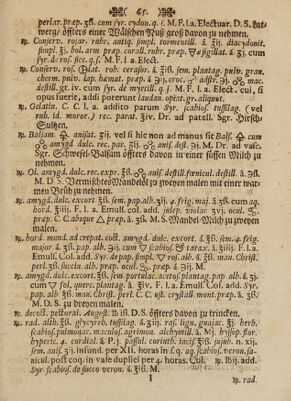 65.
perlat. præp. ʒß. cum syr. cydon. q. s. M. F. l. a. Electuar. D. S. Lat-
werg/ öffters einer Wälschen Nuß groß davon zu nehmen.
Conserv. rosar. rubr. antiq. symph. tormentill. ã ʒij. diacydonit.
simpl. ʒj. bol. arm. præp. corall. rubr. præp. sigillat. ã ʒj. cum
syr. de ros. sicc. q. s. M. F. l. a. Elect.
Conserv. ros. rob. cerasor. ã ʒiij. sem. plantag. pulv. gran-
desist. gr. iv. cum syr. de myrtill. q. s. M. F. l. a. Elect. cui, si
opus fuerit, addi poterunt laudan. opiat. gr. aliquot.
Gelatin. C. C. l. a. addito parum Syr. scabios. tussilag. ( vel
rub. id. moror.) rec. parat. ʒiv. Dr. ad patell. Sgr. Hirsch-
Sultzen.
Balsam anisat. ʒij. vel si hic non ad manus sit Bals. cum
amygd. dulc. rec. par. anis. dest. M. Dr. ad vasc.
Sgr. Schwefel-Balsam öffters davon in einer süssen Milch zu
nehmen.
Ol. amygd. dulc. rec. exp. ʒß. anis. destill. fœnicul. destill.
M. D. S. Vermischtes Mandelöl zu zweyen malen mit einer war-
men Brüh zu nehmen.
amygd. dulc. excort ʒß. sem. pap. alb. ʒij. 4. frig. maj. ã ʒß. cum aq.
bord. F. l. a. Emul. col. add. julep. violac. ʒvj. ocul.
præp. C. C. absque præp. ã ʒß. M. S. Mandel-Milch zu zweyen
malen.
bord. mund. ad crepat. coct. amygd. dulc. excort. ã ʒß. sem. 4. frig.
major ã ʒß. pap. alb. ʒij. cum scabios. tarax. ã F. l. a.
Emuls. Col. add. Syr. de pap. simpl. ros. alb. ã ʒß. man. Christ.
perl. ʒß. succin. alb. præp. ocul. præp. ã M.
amygd. dulc. excort. ʒß. sem portulac. acetos. plantag. pap. alb. ã ʒj.
cum fol. querc. plantag. ã ʒiv. F. l. a. Emuls. Col. add. Syr.
pap. alb ʒß. man. Christ. perl. C. C. ust. crystall mont. præp. ã
M. D. S. zu zweyen malen.
decoct. pectoral. August. D. S. öffters davon zu trincken.
rad. alth. ʒß. glycyrrh. tussilag. ã ʒij. ras. lign. guajac. ʒj. herb.
scabios. pulmonar. maculos. agrimon. alchymill. ã Mj. hyssop. flor.
hyperic. 4. cordial. ã P. j. passul. corinth. tacif. jujub. n.
sem. anis. ʒj. infund. per XII. horas in q. aq. scabios. veron. sa-
nicul. post coq. in vase dupliei per 4. horas. Col. add.
Syr. scabios. de succo veron. ã M.
I
rad.